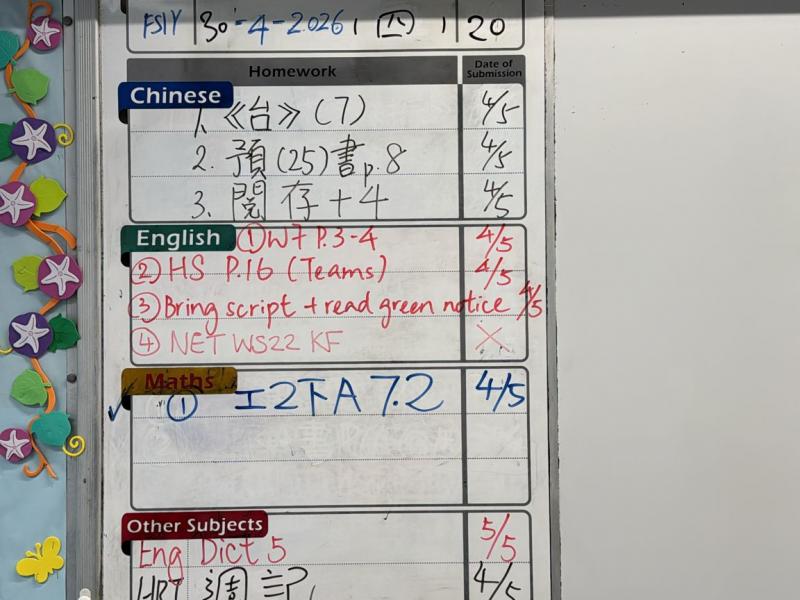 FSIY 30-4-2026, (四), 20
Homework Date of Submission
Chinese
1. 《台》(7) 4/5
2. 預(25)書p.8 4/5
3. 閱 存+4 4/5
English ①W7 P.3-4 4/5
② HS P.16 (Teams) 4/5
③ Bring script + read green notice 4/5
④ NET WS22 KF ×
Maths
✓ ① 工2下A 7.2 4/5
Other Subjects
Eng Dict 5 5/5
HRT 週記 4/5